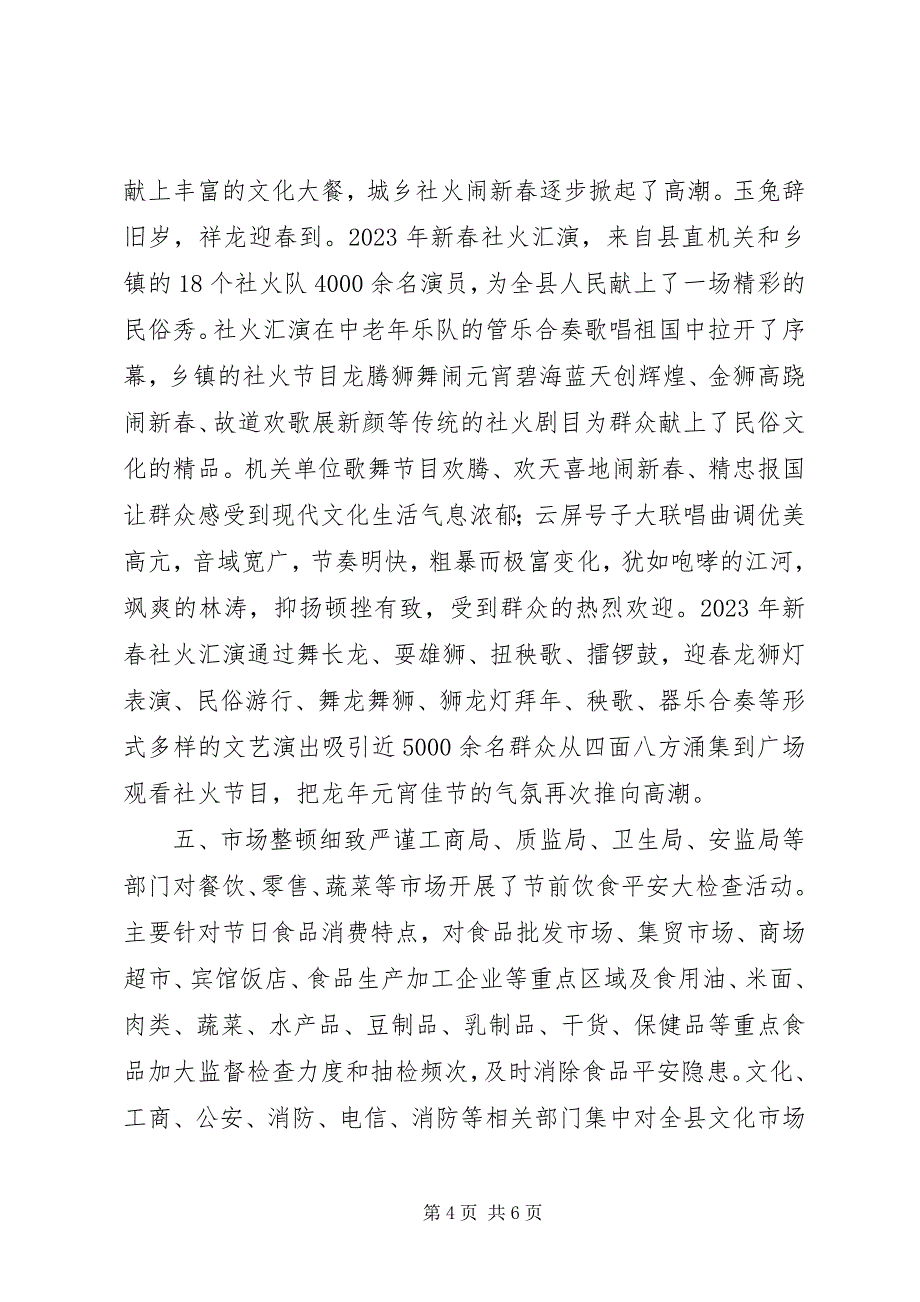 献上丰富的文化大餐，城乡社火闹新春逐步掀起了高潮。玉兔辞
旧岁，祥龙迎春到。2023 年新春社火汇演，来自县直机关和乡
镇的 18 个社火队 4000 余名演员，为全县人民献上了一场精彩的
民俗秀。社火汇演在中老年乐队的管乐合奏歌唱祖国中拉开了序
幕，乡镇的社火节目龙腾狮舞闹元宵碧海蓝天创辉煌、金狮高跷
闹新春、故道欢歌展新颜等传统的社火剧目为群众献上了民俗文
化的精品。机关单位歌舞节目欢腾、欢天喜地闹新春、精忠报国
让群众感受到现代文化生活气息浓郁；云屏号子大联唱曲调优美
高亢，音域宽广，节奏明快，粗暴而极富变化，犹如咆哮的江河，
飒爽的林涛，抑扬顿挫有致，受到群众的热烈欢迎。2023 年新
春社火汇演通过舞长龙、耍雄狮、扭秧歌、擂锣鼓，迎春龙狮灯
表演、民俗游行、舞龙舞狮、狮龙灯拜年、秧歌、器乐合奏等形
式多样的文艺演出吸引近 5000 余名群众从四面八方涌集到广场
观看社火节目，把龙年元宵佳节的气氛再次推向高潮。
五、市场整顿细致严谨工商局、质监局、卫生局、安监局等
部门对餐饮、零售、蔬菜等市场开展了节前饮食平安大检查活动。
主要针对节日食品消费特点，对食品批发市场、集贸市场、商场
超市、宾馆饭店、食品生产加工企业等重点区域及食用油、米面、
肉类、蔬菜、水产品、豆制品、乳制品、干货、保健品等重点食
品加大监督检查力度和抽检频次，及时消除食品平安隐患。文化、
工商、公安、消防、电信、消防等相关部门集中对全县文化市场
第 4 页 共 6 页